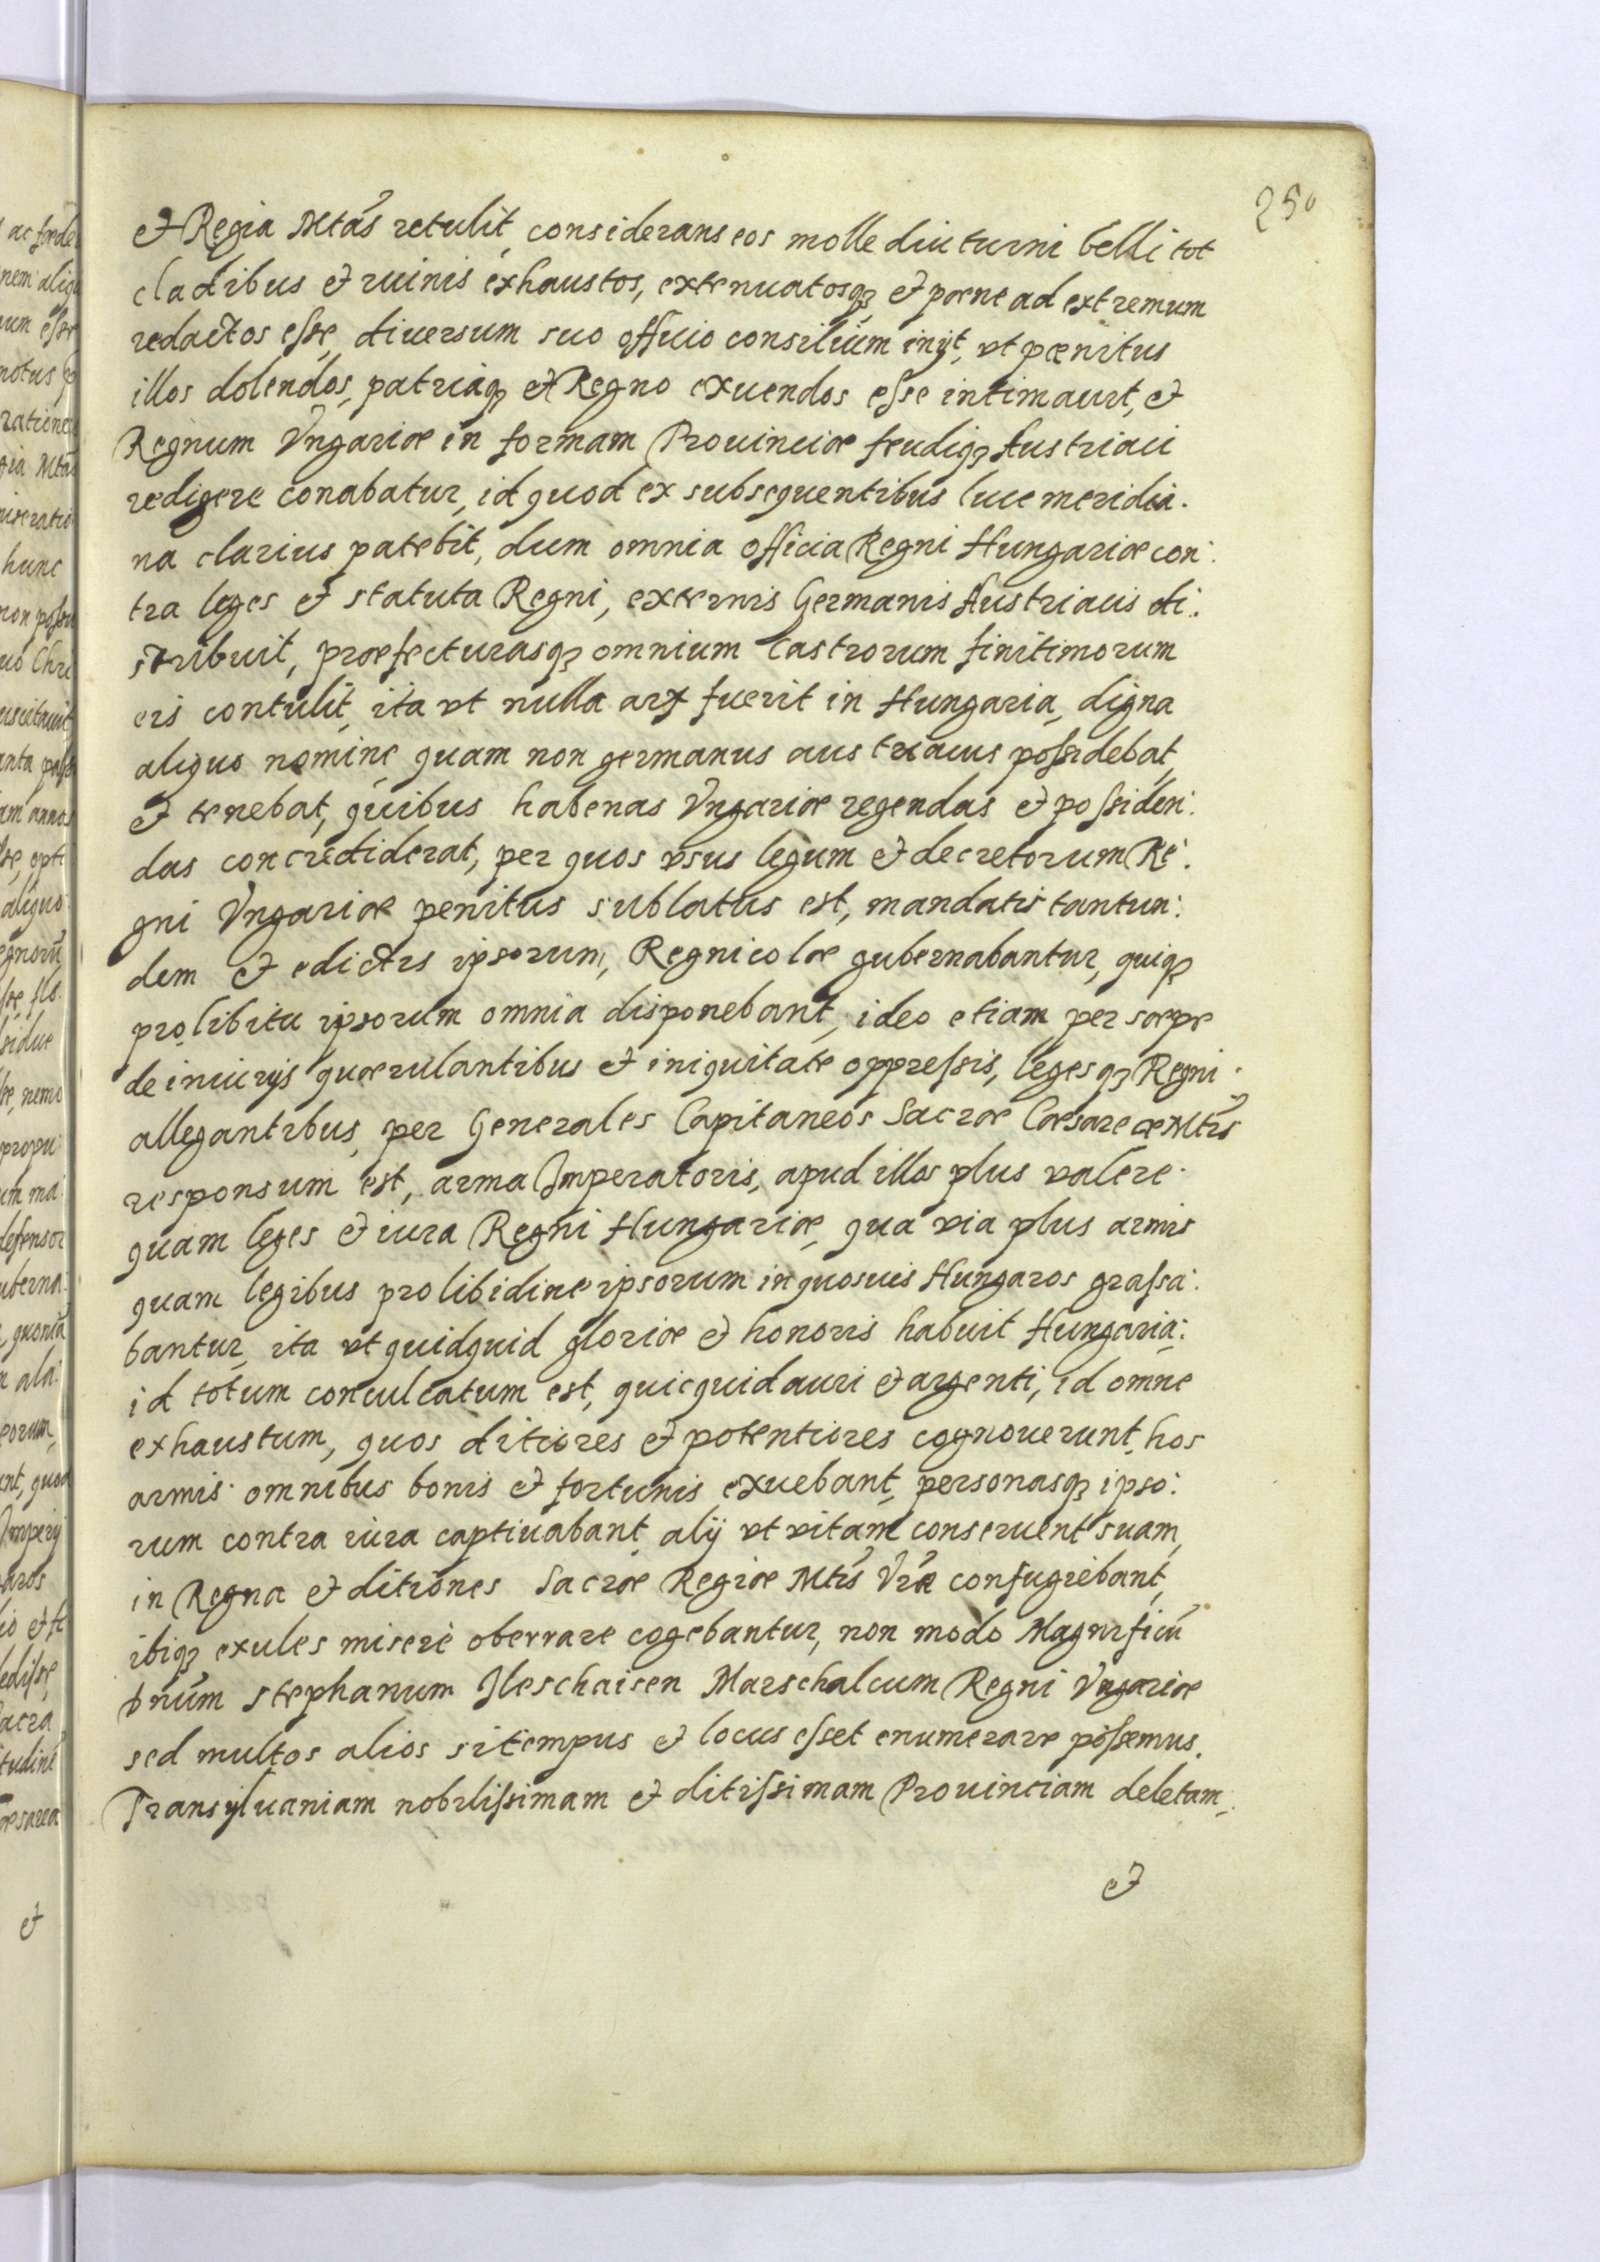 250
et Regia Mtas retulit, considerans eos molle diuturni belli tot
cladibus et ruinis exhaustos, extenuatosq₃ et poene ad extremum
redactos eſse, diuersum suo officio consilium inijt, vt pœnitus
illos dolendos, patriaq₃ et Regno exuendos eſse intimauit, et
Regnum Vngariæ in formam Prouinciæ feudiq₃ Austriaci
redigere conabatur, id quod ex subsequentibus luce meridia.
na clarius patebit, dum omnia officia Regni Hungariæ con:
tra leges et statuta Regni, externis Germanis Austriacis di:
stribuit, præfecturasq₃ omnium Castrorum finitimorum
eis contulit, ita vt nulla arx fuerit in Hungaria, digna
aliquo nomine quam non germanus austriacus poſsidebat,
et tenebat, quibus habenas Vngariæ regendas et poſsiden:
das concrediderat, per quos vsus legum et decretorum Re:
gni Vngariæ penitus sublatus est, mandatis tantun:
dem et edictis ipsorum, Regnicolæ gubernabantur, quiq₃
pro libitu ipsorum omnia disponebant, ideo etiam per sæpe
de iniurijs quærulantibus et iniquitate oppreſsis, legesq₃ Regni
allegantibus, per Generales Capitaneos Sacræ Cæsareæ Mtis
responsum est, arma Imperatoris, apud illos plus valere
quam leges et iura Regni Hungariæ, qua via plus armis
quam legibus pro libidine ipsorum in quosuis Hungaros graſsa:
bantur, ita vt quidquid gloriæ et honoris habuit Hungaria:
id totum conculcatum est, quicquid auri et argenti, id omne
exhaustum, quos ditiores et potentiores cognouerunt, hos
armis omnibus bonis et fortunis exuebant, personasq₃ ipso:
rum contra iura captiuabant, alij vt vitam conseruent suam,
in Regna et ditiones Sacræ Regiæ Mtis Vræ confugiebant,
ibiq₃ exules miserè oberrare cogebantur, non modo Magnificū
Dnum Stephanum Ileschaisen Marschalcum Regni Vngariæ
sed multos alios si tempus et locus eſset enumerare poſsemus.
Transyluaniam nobiliſsimam et ditiſsimam Prouinciam deletam,
et